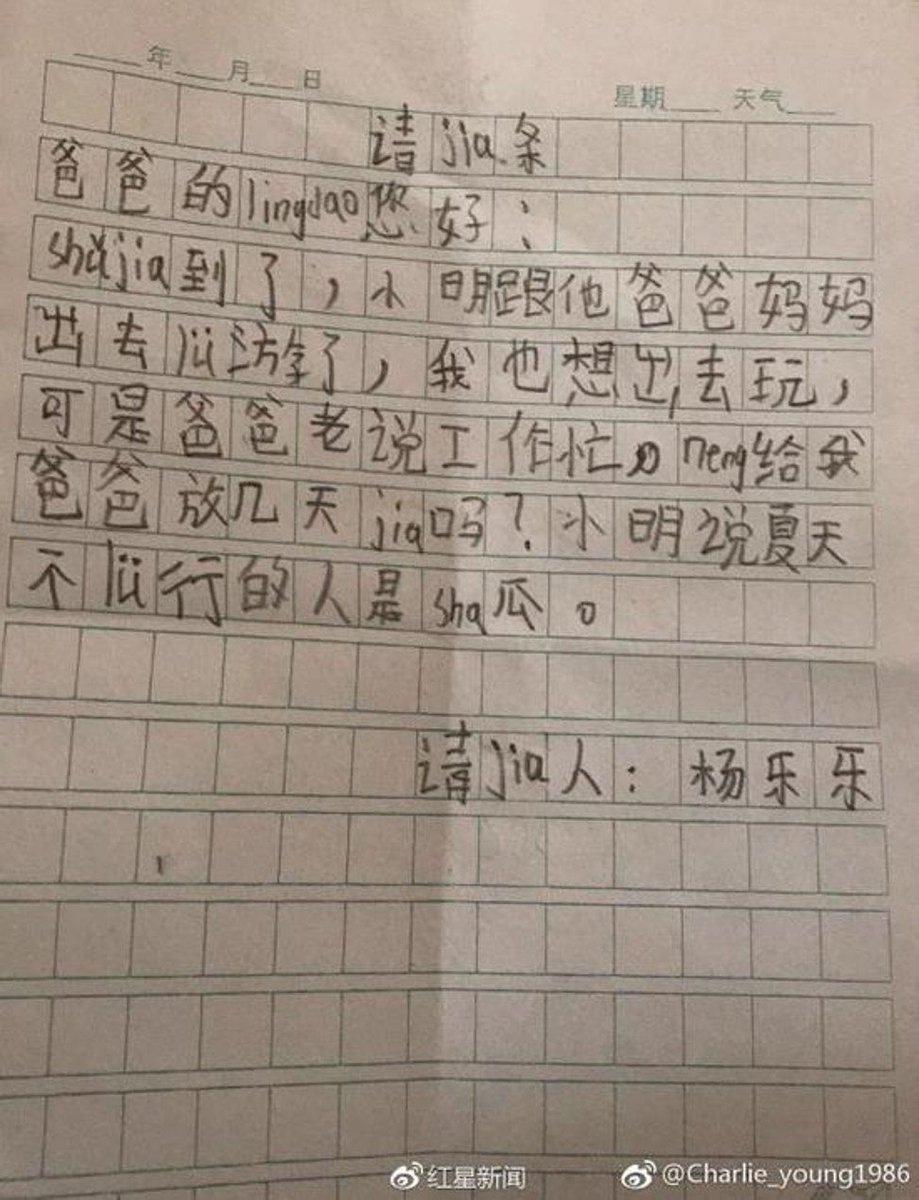 ____年____月____日 星期____ 天气____
请jia条
爸爸的lingdao您好：
shǔjia到了，小明跟他爸爸妈妈
出去lü游了，我也想出去玩，
可是爸爸老说工作忙。neng给我
爸爸放几天jia吗？小明说夏天
不lü行的人是sha瓜。
请jia人：杨乐乐
红星新闻 @Charlie_young1986